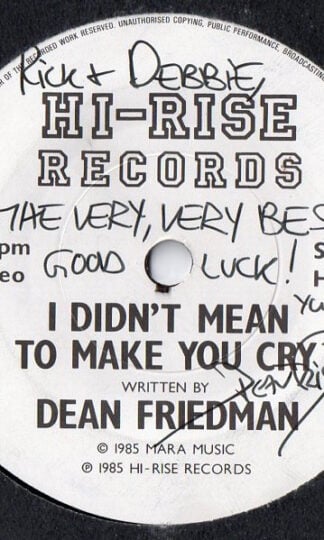 OF THE RECORDED WORK RESERVED. UNAUTHORISED COPYING, PUBLIC PERFORMANCE, BROADCASTING
Rick + DEBBIE,
HI-RISE
RECORDS
THE VERY, VERY BES
GOOD LUCK!
I DIDN'T MEAN
TO MAKE YOU CRY
WRITTEN BY
DEAN FRIEDMAN
© 1985 MARA MUSIC
℗ 1985 HI-RISE RECORDS